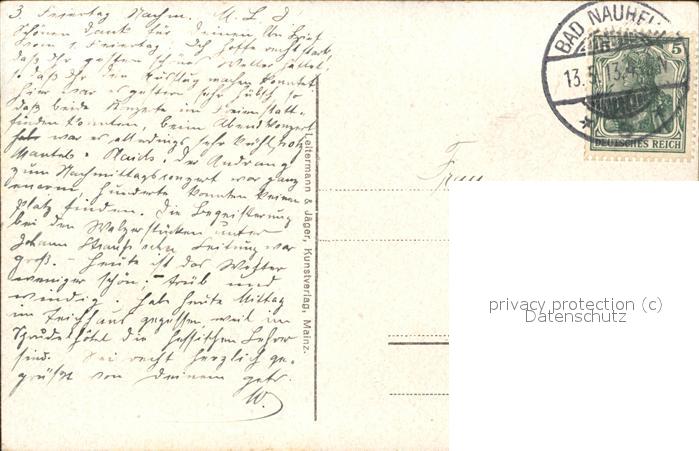 3. Feiertag Nachm. M. L. J.
Schönen Dank für Deinen Brief
vom 1. Feiertag. Ich hoffe recht stark,
daß Ihr gestern schönes Wetter hattet,
so daß Ihr den Ausflug machen konntet.
Hier war es gestern sehr hübsch so
daß beide Konzerte im Freien statt-
finden konnten, beim Abendkonzert
war es allerdings sehr kühl, trotz
Mantel. Der Andrang
zum Nachmittagskonzert war ganz
enorm, Hunderte konnten keinen
Platz finden. Die Begeisterung
bei den Walzerstücken unter
Johann Strauß Leitung war
groß. - Heute ist das Wetter
weniger schön, - trüb und
windig. Hab heute Mittag
im Teichhaus gegessen, weil im
Sprudelhotel die hessischen Lehrer
sind. Sei recht herzlich ge-
grüßt von Deinem getr.
W.
Leitermann & Jäger, Kunstverlag, Mainz.
Frau
BAD NAUHEIM
13.5.13.
5
DEUTSCHES REICH
privacy protection (c)
Datenschutz